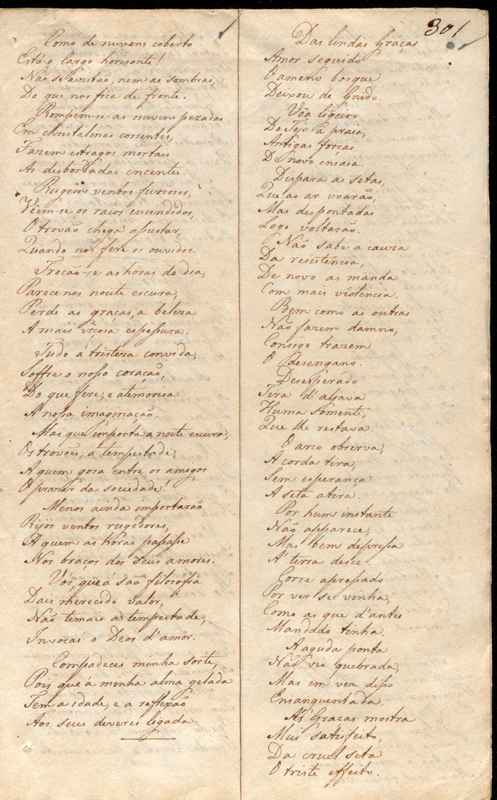 301
Como de nuvens coberto
Está o largo horisonte!
Não se avistão, nem as sombras,
Do que nos fica de fronte.
Rompem-se as nuvens pezadas
Em christalinas correntes,
Fazem estragos mortaes
As desbordadas enchentes
Rugem ventos furiosos,
Vêem-se os raios incendidos,
O trovão chega a pustar,
Quando nos fere os ouvidos.
Trocão-se as horas do dia,
Parece nos noute escura,
Perde as graças, a beleza
A mais viçosa espessura.
Tudo á tristeza convida,
Soffre o nosso coração,
Do que fere, e atemoriza
A nossa imaginação.
Mas que importa a noite escura,
Os trovoes, a tempestade,
A quem goza entre os amigos
O prazer da sociedade!
Menos ainda importarão
Rijos ventos rugidores,
A quem as horas passasse
Nos braços dos seus amores.
Vós que a saã filosofia
Dais merecido valor,
Não temais a tempestade,
Invocai o Deos d'amor.
Compadecei minha sorte,
Pois que a minha alma gelada
Tem a idade, e a reflexão
Aos seus deveres legada.
Das lindas Graças
Amor seguido
O ameno bosque
Deixou de Gnido.
Vôa ligeiro
Do Tejo á praia,
Antigas forças
De novo ensaia
Dispara as setas,
Que ao ar voarão,
Mas despontadas
Logo voltarão.
Não sabe a cauza
Da resistencia,
De novo as manda
Com mais violencia.
Bem como as outras
Não fazem damno,
Comsigo trazem
O desengano.
Desesperado
Tira d'aljava
Huma sómente,
Que lhe restava
O arco observa,
A corda tira,
Sem esperança
A seta atira.
Por hum instante
Não apparece,
Mas bem depressa
A terra desce
Corre apressado
Por ver se vinha,
Como as que d'antes
Mandado tenha.
A aguda ponta
Não vio quebrada,
Mas em vez disso
Ensanguentada.
Ás Graças mostra
Mui satisfeito,
Da cruel seta
O triste effeito.